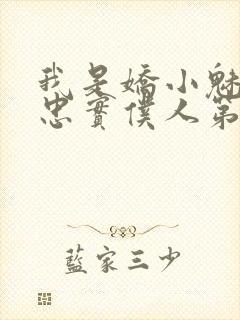 我是嬌小魅
忠實僕人第
藍家三少